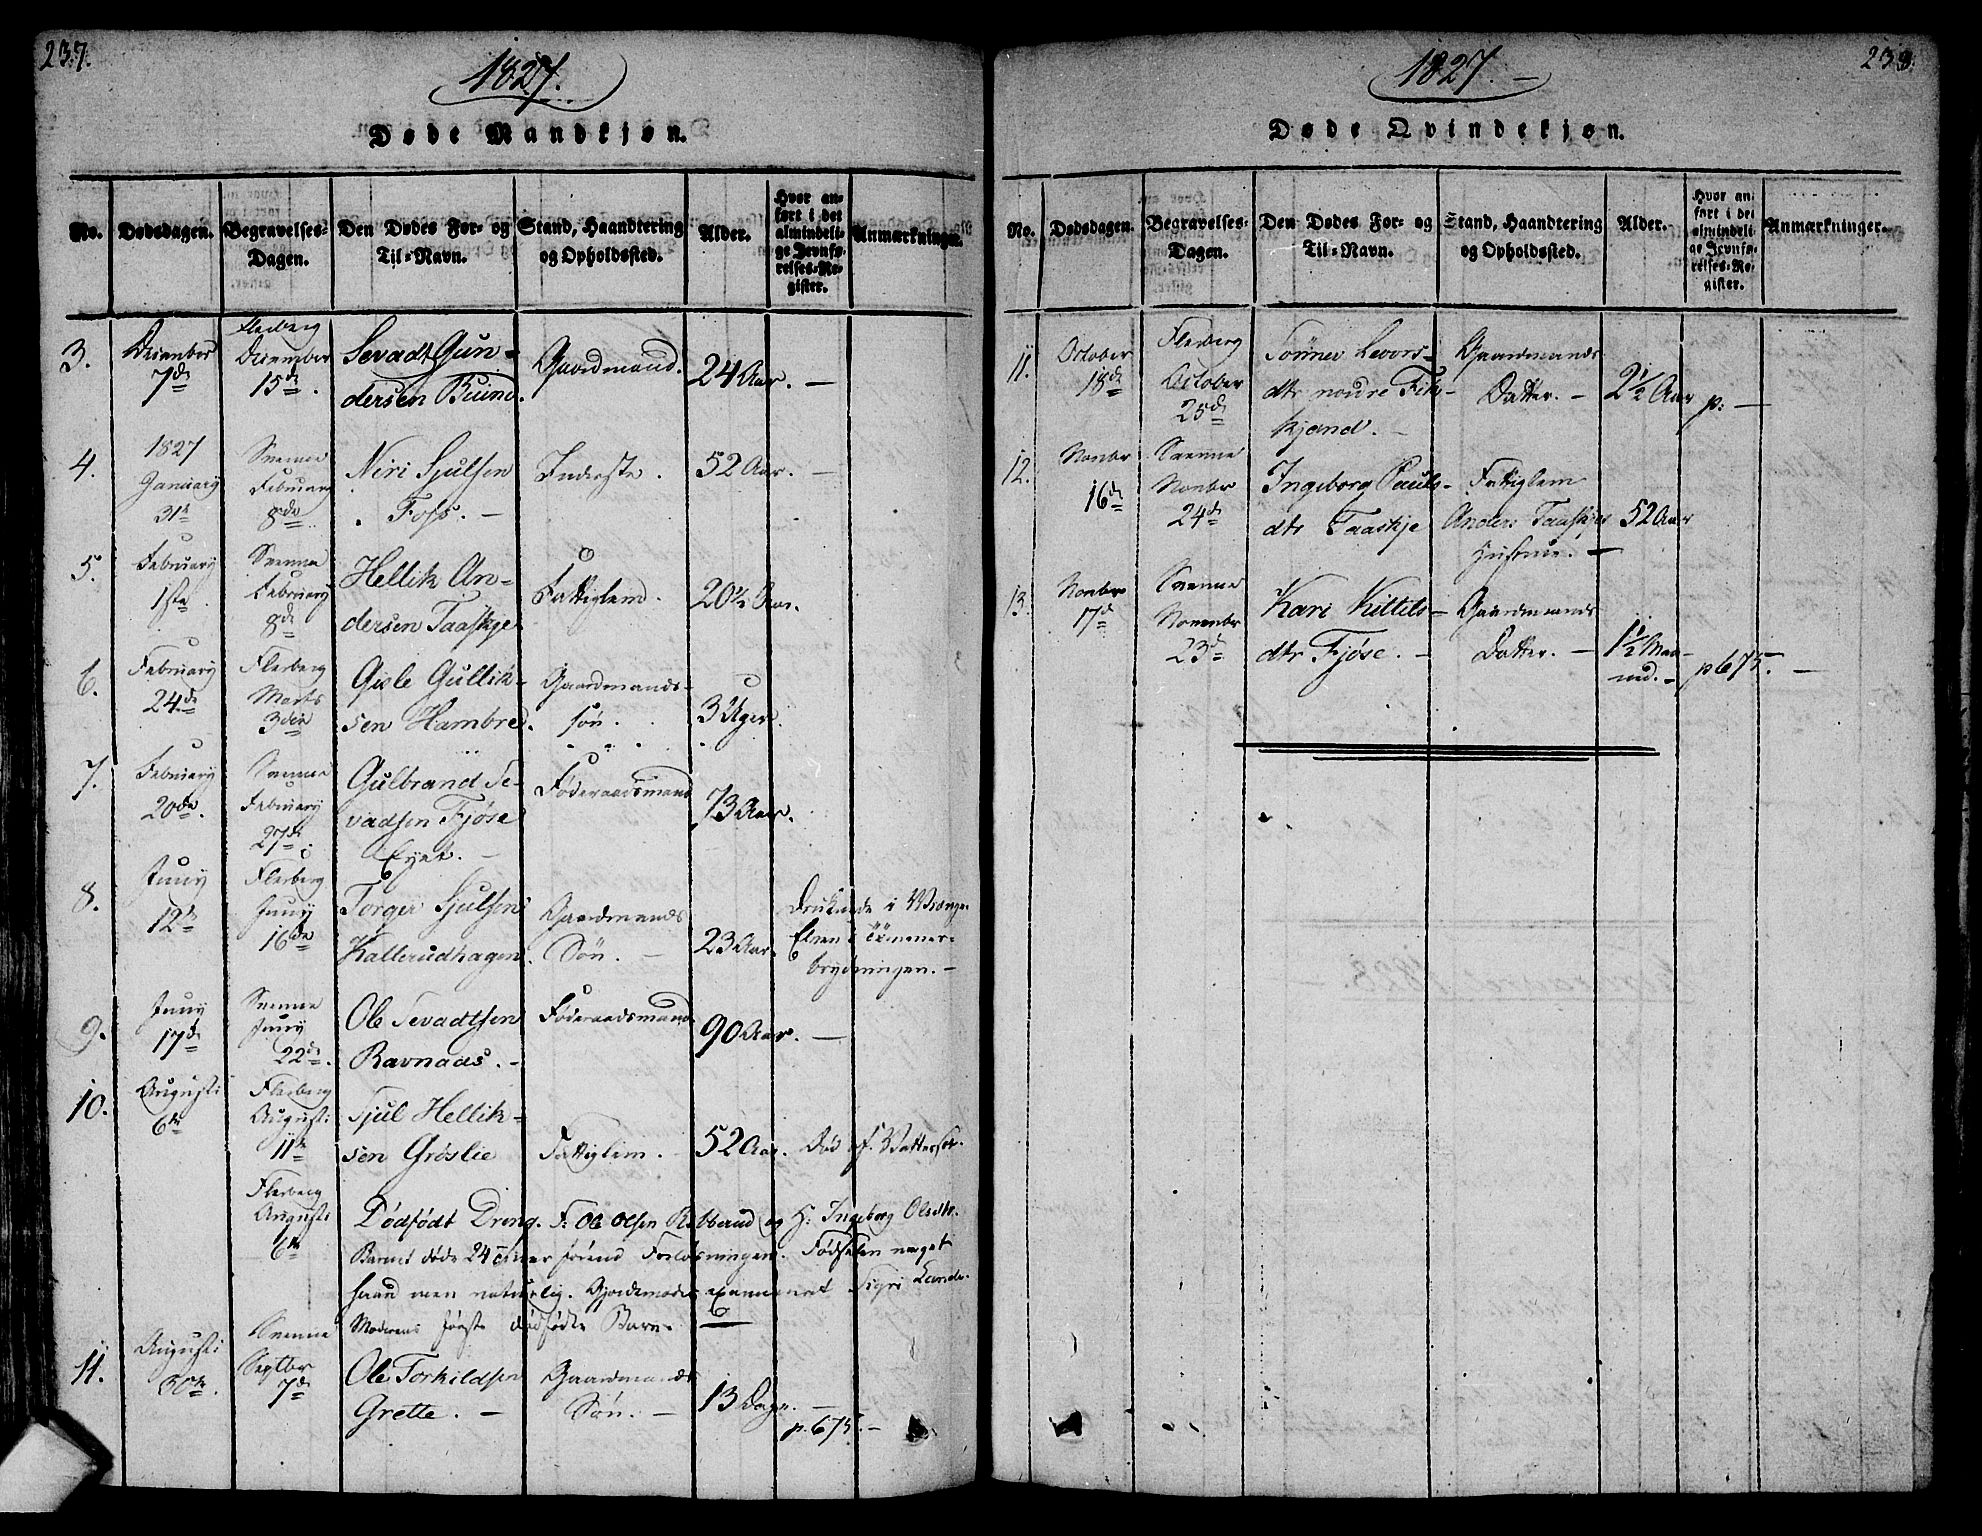 237.
1827.
Døde Mandkjøn.
No.
Dødsdagen.
Begravelses-
Dagen.
Den Dødes For- og
Til-Navn.
Stand, Haandtering
og Opholdssted.
Alder.
Hvor an-
ført i det
almindeli-
ge Jevnfø-
relses-Re-
gister.
Anmærkninger.
3.
December
7de
Flesberg
December
15de.
Sevadt Gun-
dersen Bruno.
Gaardmand.
24 Aar. —
4.
1827
January
31te
Svenne
Februar
8de
Niri Sjulsen
Foss. —
Inderste.
52 Aar. —
5.
February
1ste
Svenne
February
8de
Hellik An-
dersen Taaskje
Fattiglem.
20½ Aar.
6.
February
24de
Flesberg
Marts
3die
Gisle Gullik-
sen Hambre.
Gaardmands-
søn.
3 Uger.
7.
February
20de.
Svenne
February
27de.
Gulbrand Se-
vadsen Fjøse
Eyet. —
Føderaadsmand
73 Aar.
8.
Juny
12te
Flesberg
Juny
16de
Torger Sjulsen
Kallerudhagen.
Gaardmands
Søn. —
23 Aar.
Druknede i
Elven i Tømmer-
brydningen. —
9.
Juny
17de
Svenne
Juny
22de.
Ole Sevadtsen
Ravnaas. -
Føderaadsmand
90 Aar. —
10.
Augusti
6te
Flesberg
Augusti
11te
Sjul Hellik-
sen Grøslie
Fattiglem.
52 Aar.
Død af Vattersot.
Flesberg
Augusti
6te
Dødfødt Dreng. F: Ole Olsen og H: Ingeborg Olsdtr.
Barnet døde 24 Timer førend Forløsningen. Fødselen noget
haard men naturlig. Gjordemoder examineret Sigri
Moderens første dødfødte Barn.
11.
Augusti
30te.
Svenne
Septbr
7de
Ole Torkildsen
Grette. —
Gaardmands
Søn. —
13 Dage. —
p. 675. —
238.
1827. —
Døde Qvindekjøn.
No.
Dødsdagen.
Begravelses-
Dagen.
Den Dødes For- og
Til-Navn.
Stand, Haandtering
og Opholdssted.
Alder.
Hvor an-
ført i det
almindeli-
ge Jevnfø-
relses-Re-
gister.
Anmærkninger.
11.
October
18de
Flesberg
October
25de
Sønnev Levors-
dtr nordre Fik-
kjand. —
Gaardmands
Datter. —
2½ Aar
p: —
12.
Novbr
16de
Svenne
Novbr
24de
Ingeborg Pauls-
dtr Taaskje
Fattiglem
Anders Taaskjes
Hustrue. —
52 Aar
13.
Novbr
17de
Svenne
Novembr
23de
Kari Kittils-
dtr Fjøse. —
Gaardmands
Datter. —
1½ Maa-
ned. -
p 675. —